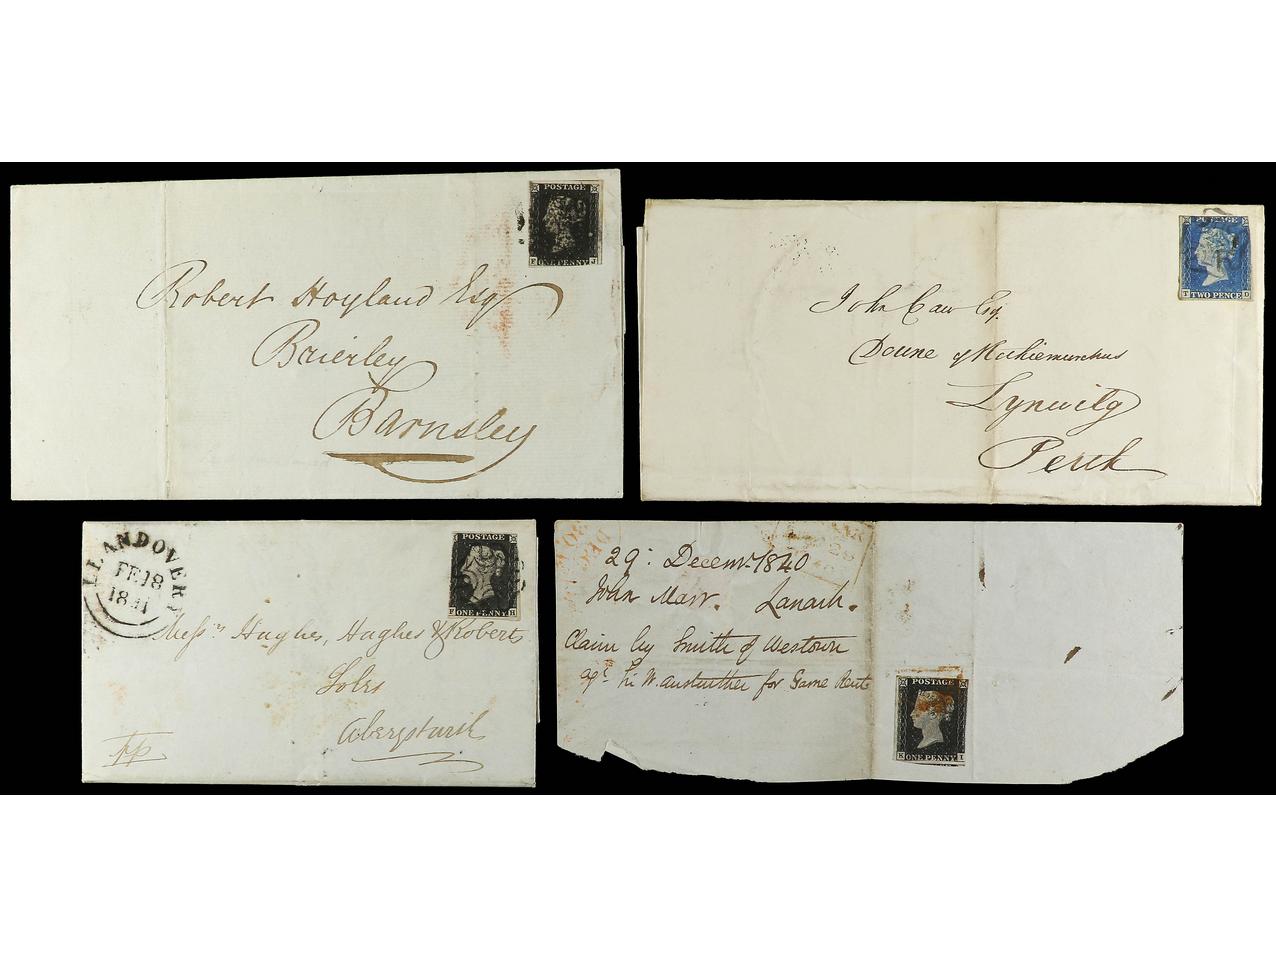 POSTAGE
F ONE PENNY J
Robert Hoyland Esq
Brierley
Barnsley
POSTAGE
T TWO PENCE D
John Caw Esq.
Doune of Rothiemurchus
Lynwilg
Perth
LLANDOVERY
FE 18
1841
POSTAGE
F ONE PENNY H
Messrs Hughes, Hughes & Roberts
Solrs
Aberystwith
pp
DEC
28
29: Decemr 1840
John Marr. Lanark.
Claim by Smith of Westown
for Game Rent
POSTAGE
K ONE PENNY I